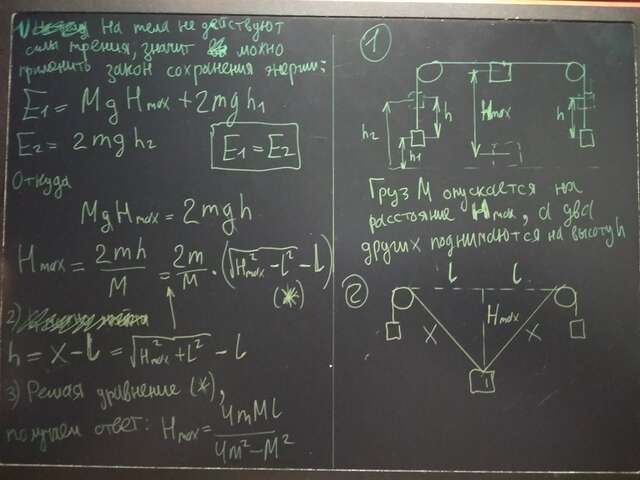 1) На тела не действуют
силы трения, значит можно
применить закон сохранения энергии:
E₁ = MgHmax + 2mgh₁
E₂ = 2mgh₂
E₁ = E₂
Откуда
MgHmax = 2mgh
Hmax = 2mh/M = 2m/M · (√(H²max - l²) - l)
(*)
2)
h = x - l = √(H²max + l²) - l
3) Решая уравнение (*),
получаем ответ: Hmax = 4mMl/(4m² - M²)
1
h₂
h
h₁
Hmax
h
Груз M опускается на
расстояние Hmax, а два
других поднимаются на высоту h
2
l
l
Hmax
x
x